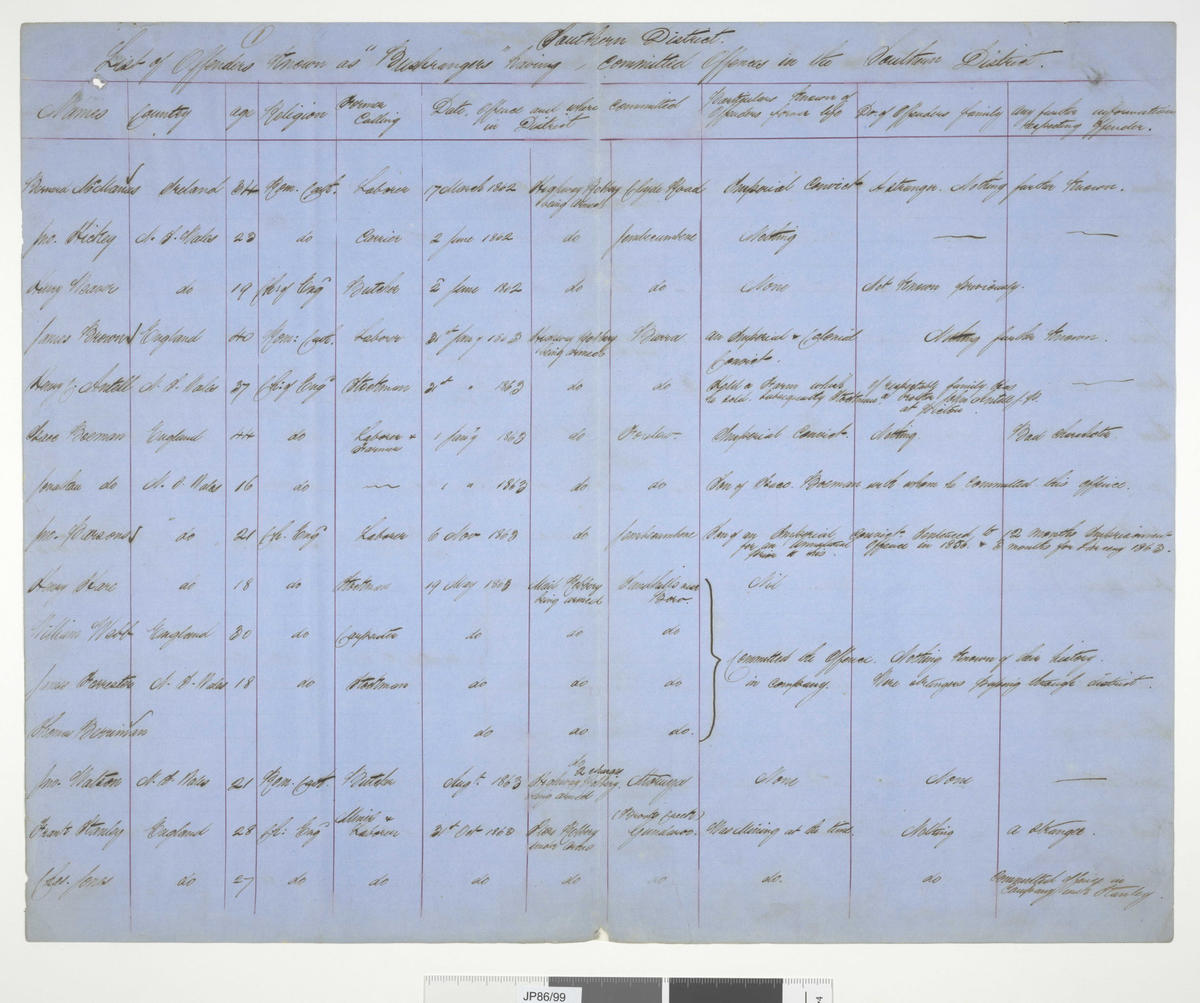 (1)
Southern District.
List of Offenders Known as "Bushrangers" having committed Offences in the Southern District.
Names Country age Religion Former Calling Date, Offence and where committed in District Particulars Known of Offenders former life Do. of Offenders family any further information respecting Offender.
Bernard McManus Ireland 34 Rom. Cath. Laborer 17 March 1862 Highway Robbery being armed Clyde Road Imperial Convict A stranger. Nothing further Known.
Jno. Hickey N. S. Wales 23 do Carrier 2 June 1862 do Jembaicumbene Nothing — —
Henry Warner do 19 Ch. of Engd Butcher 2 June 1862 do do None Not Known previously.
James Brown England 40 Rom: Cath. Laborer 21st Jany 1863 Highway Robbery being armed Burra an Imperial & Colonial Convict. Nothing further Known.
Henry J. Antill N. S. Wales 27 Ch. of Engd Stockman 21st " 1863 do do Held a Farm which he sold. Subsequently Stockman Of respectable family has a brother John Antill J.P. at Picton —
Isaac Boseman England 44 do Laborer & Farmer 1 Jany 1863 do Imperial Convict. Nothing Bad character.
Jonathan do N. S. Wales 16 do — 1 " 1863 do do Son of Isaac Boseman with whom he committed this offence.
Jno. Parsons " do 21 Ch. Engd Laborer 6 Nov 1863 do Jembaicumbene Son of an Imperial Convict. Sentenced to 12 months Imprisonment for an Offence in 1860. & 3 months for Larceny 1863.
Henry Hare do 18 do Stockman 19 May 1863 Mail Robbery being armed Sandhills near Boro. Nil
William Webb England 30 do Carpenter do do do
James Forrester N. S. Wales 18 do Stockman do do do Committed the Offence in company. Nothing Known of their history. Were strangers passing through district.
Thomas Berriman do do do.
Jno. Watson N. S. Wales 21 Rom. Cath. Butcher Augt. 1863 2 charges Highway Robbery being armed Moruya None None —
Frank Stanley England 28 Ch: Engd Miner & Laborer 21st Oct 1863 Gundaroo. Was Mining at the time Nothing a stranger.
Chas. Jones do 27 do do do do do do. do Committed offence in company with Stanley.
JP86/99